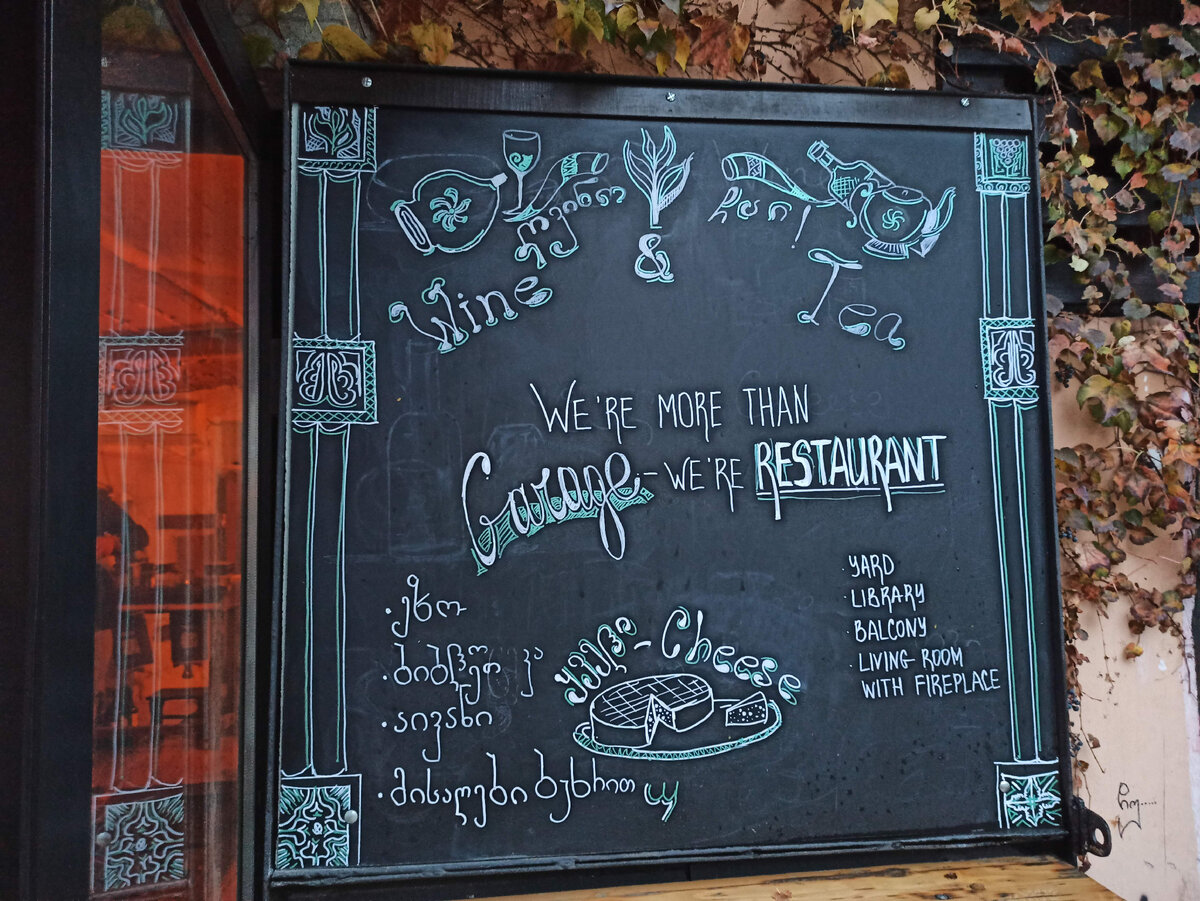 ღვინო
ჩაი
Wine & Tea
WE'RE MORE THAN
Garage - WE'RE RESTAURANT
· ეზო
· აივანი
· მისაღები ბუხრით
ყველი - Cheese
· YARD
· LIBRARY
· BALCONY
· LIVING ROOM
WITH FIREPLACE